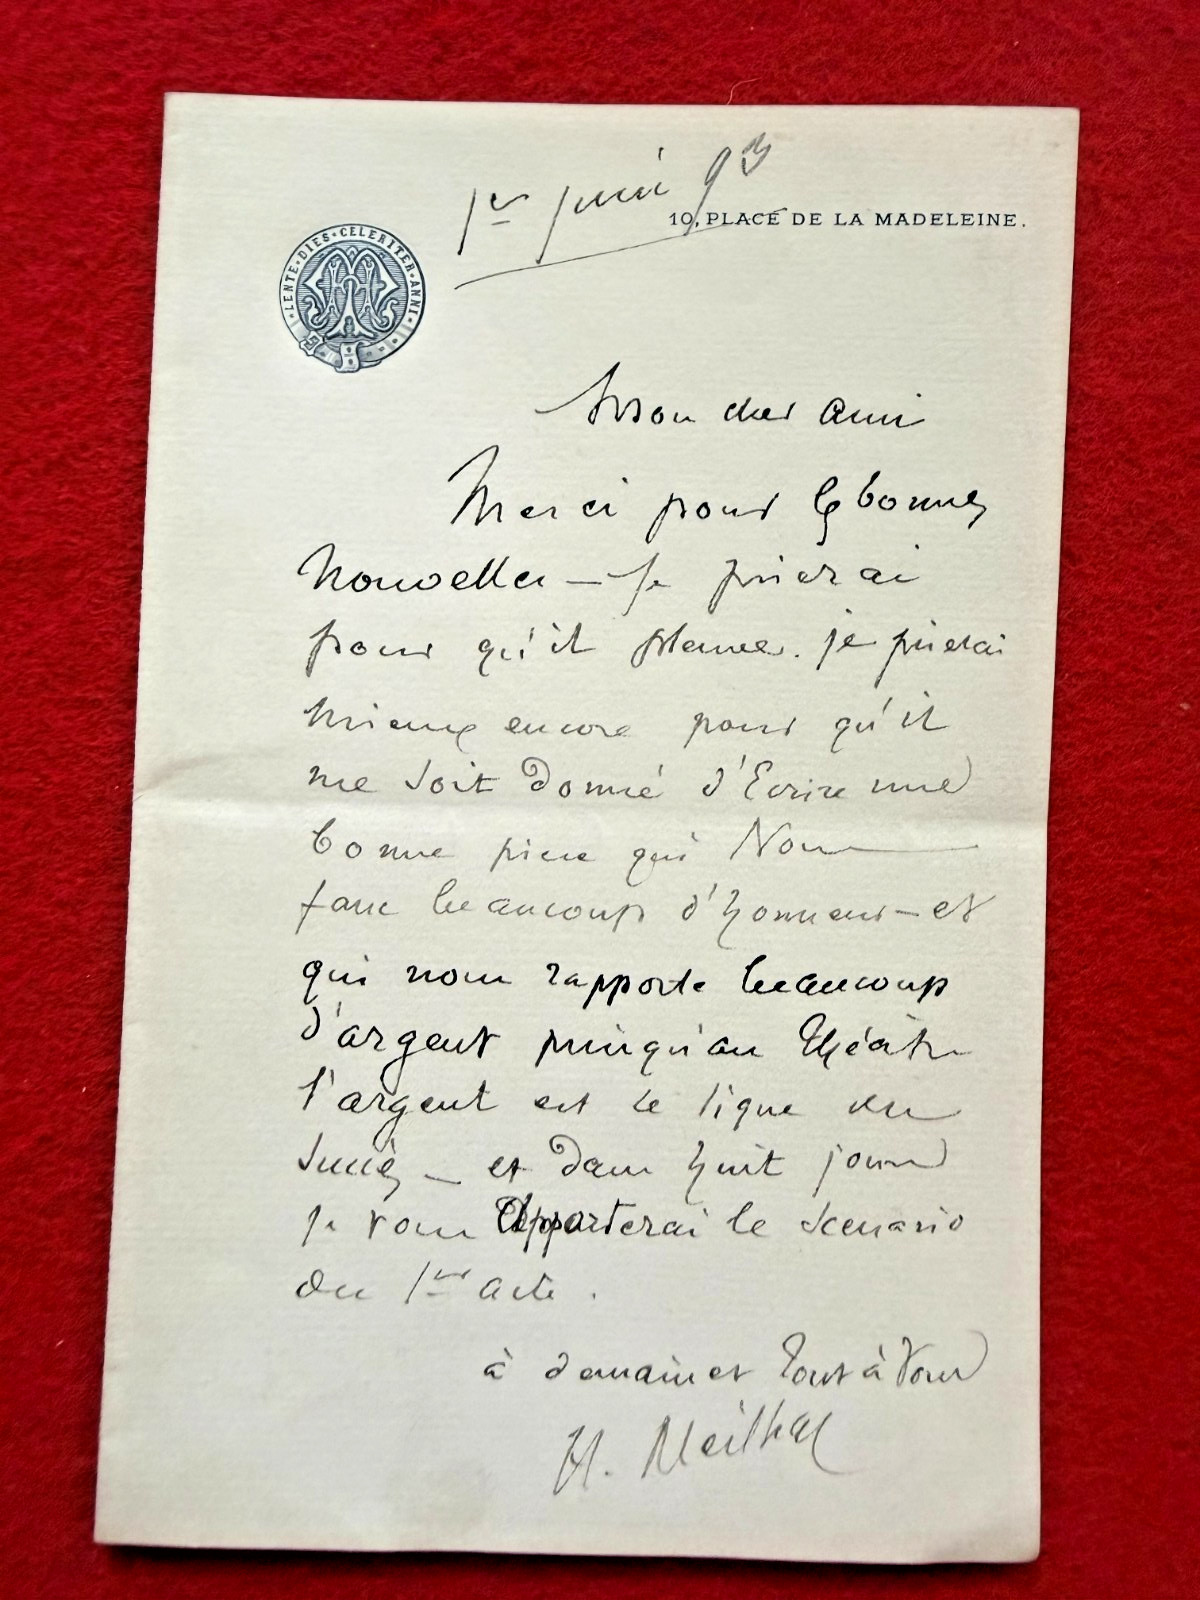 1er juin 93
10, PLACE DE LA MADELEINE.
LENTE · DIES · CELERITER · ANNI
Mon cher ami
Merci pour les bonnes
Nouvelles — Je prierai
pour qu'il pleuve. je prierai
mieux encore pour qu'il
me soit donné d'Ecrire une
bonne piece qui Nous
fasse beaucoup d'honneur — et
qui nous rapporte beaucoup
d'argent puisqu'au Théâtre
l'argent est le signe du
succès — et dans huit jours
je vous Apporterai le scenario
du 1er acte.
à demain et tout à vous
H. Meilhac